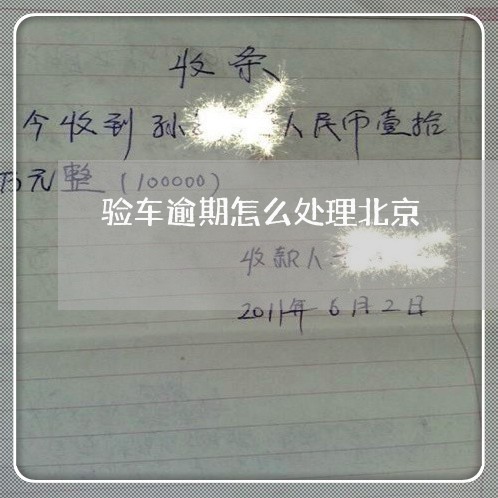 收条
今收到孙 人民币壹拾
万元整（100000）
验车逾期怎么处理北京
收款人
2011年6月2日